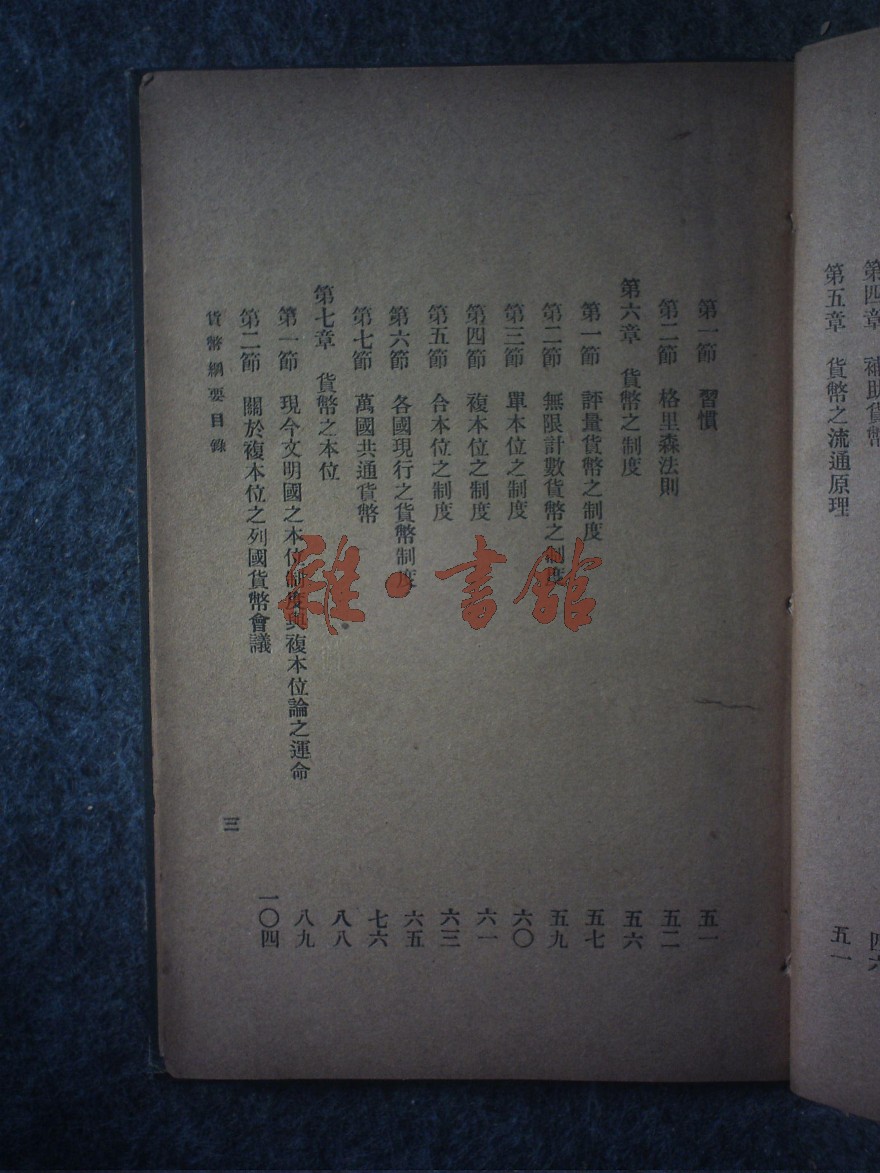 第四章 補助貨幣 四六
第五章 貨幣之流通原理 五一
第一節 習慣 五一
第二節 格里森法則 五二
第六章 貨幣之制度 五六
第一節 評量貨幣之制度 五七
第二節 無限計數貨幣之制度 五九
第三節 單本位之制度 六〇
第四節 複本位之制度 六一
第五節 合本位之制度 六三
第六節 各國現行之貨幣制度 六五
第七節 萬國共通貨幣 七六
第七章 貨幣之本位 八八
第一節 現今文明國之本位制度與複本位論之運命 八九
第二節 關於複本位之列國貨幣會議 一〇四
貨幣綱要目錄 三
雜·書館